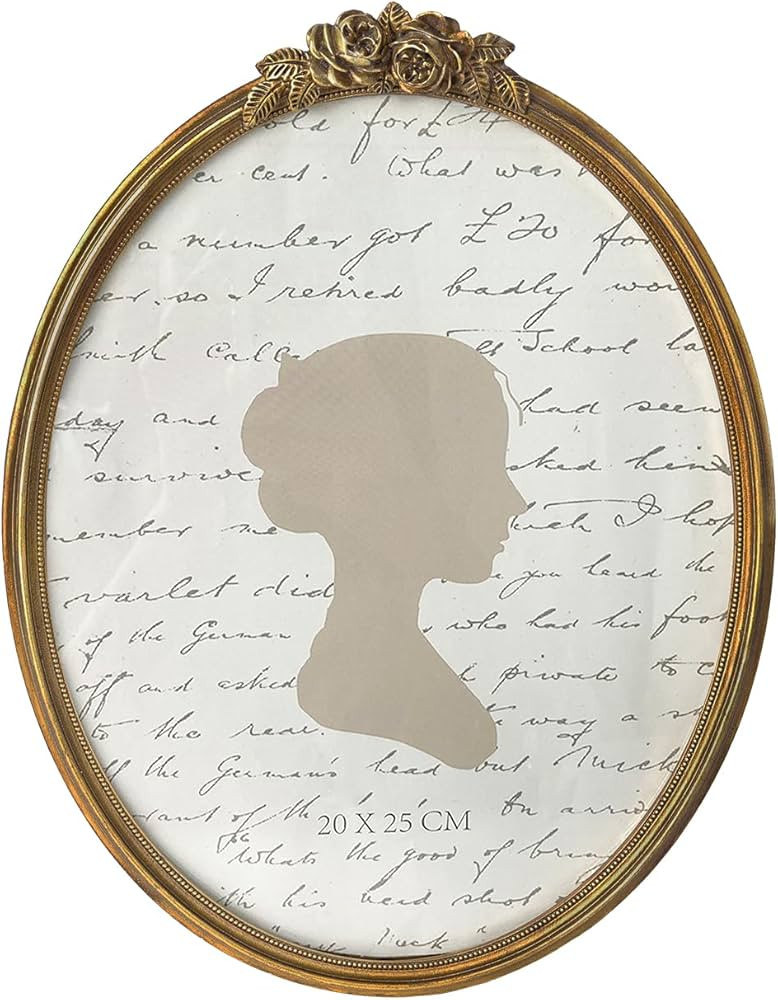 old for £24
er cent. What was
a number got £20 for
er, so I retired badly wou
Smith Call School la
day and had seen
survive sked him
member me which I hop
varlet did you heard the
of the German who had his foot
off and asked private to
to the rear. way a
of the German's head out Mick
vant of the On arri
20 X 25 CM
"Whats the good of brin
with his head shot
Mick"